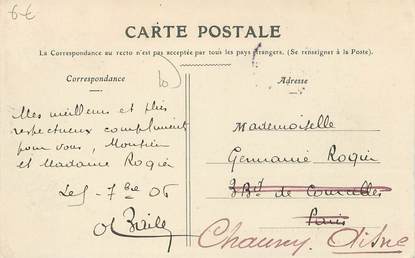 6€
CARTE POSTALE
La Correspondance au recto n'est pas acceptée par tous les pays étrangers. (Se renseigner à la Poste.)
Correspondance
Adresse
Mes meilleurs et plus
respectueux compliments
pour vous, Monsieur
et Madame Rogier
Le 5 - 7bre 06
Mademoiselle
Germaine Rogier
3 Bd de Courcelles
Paris
Chauny. Aisne